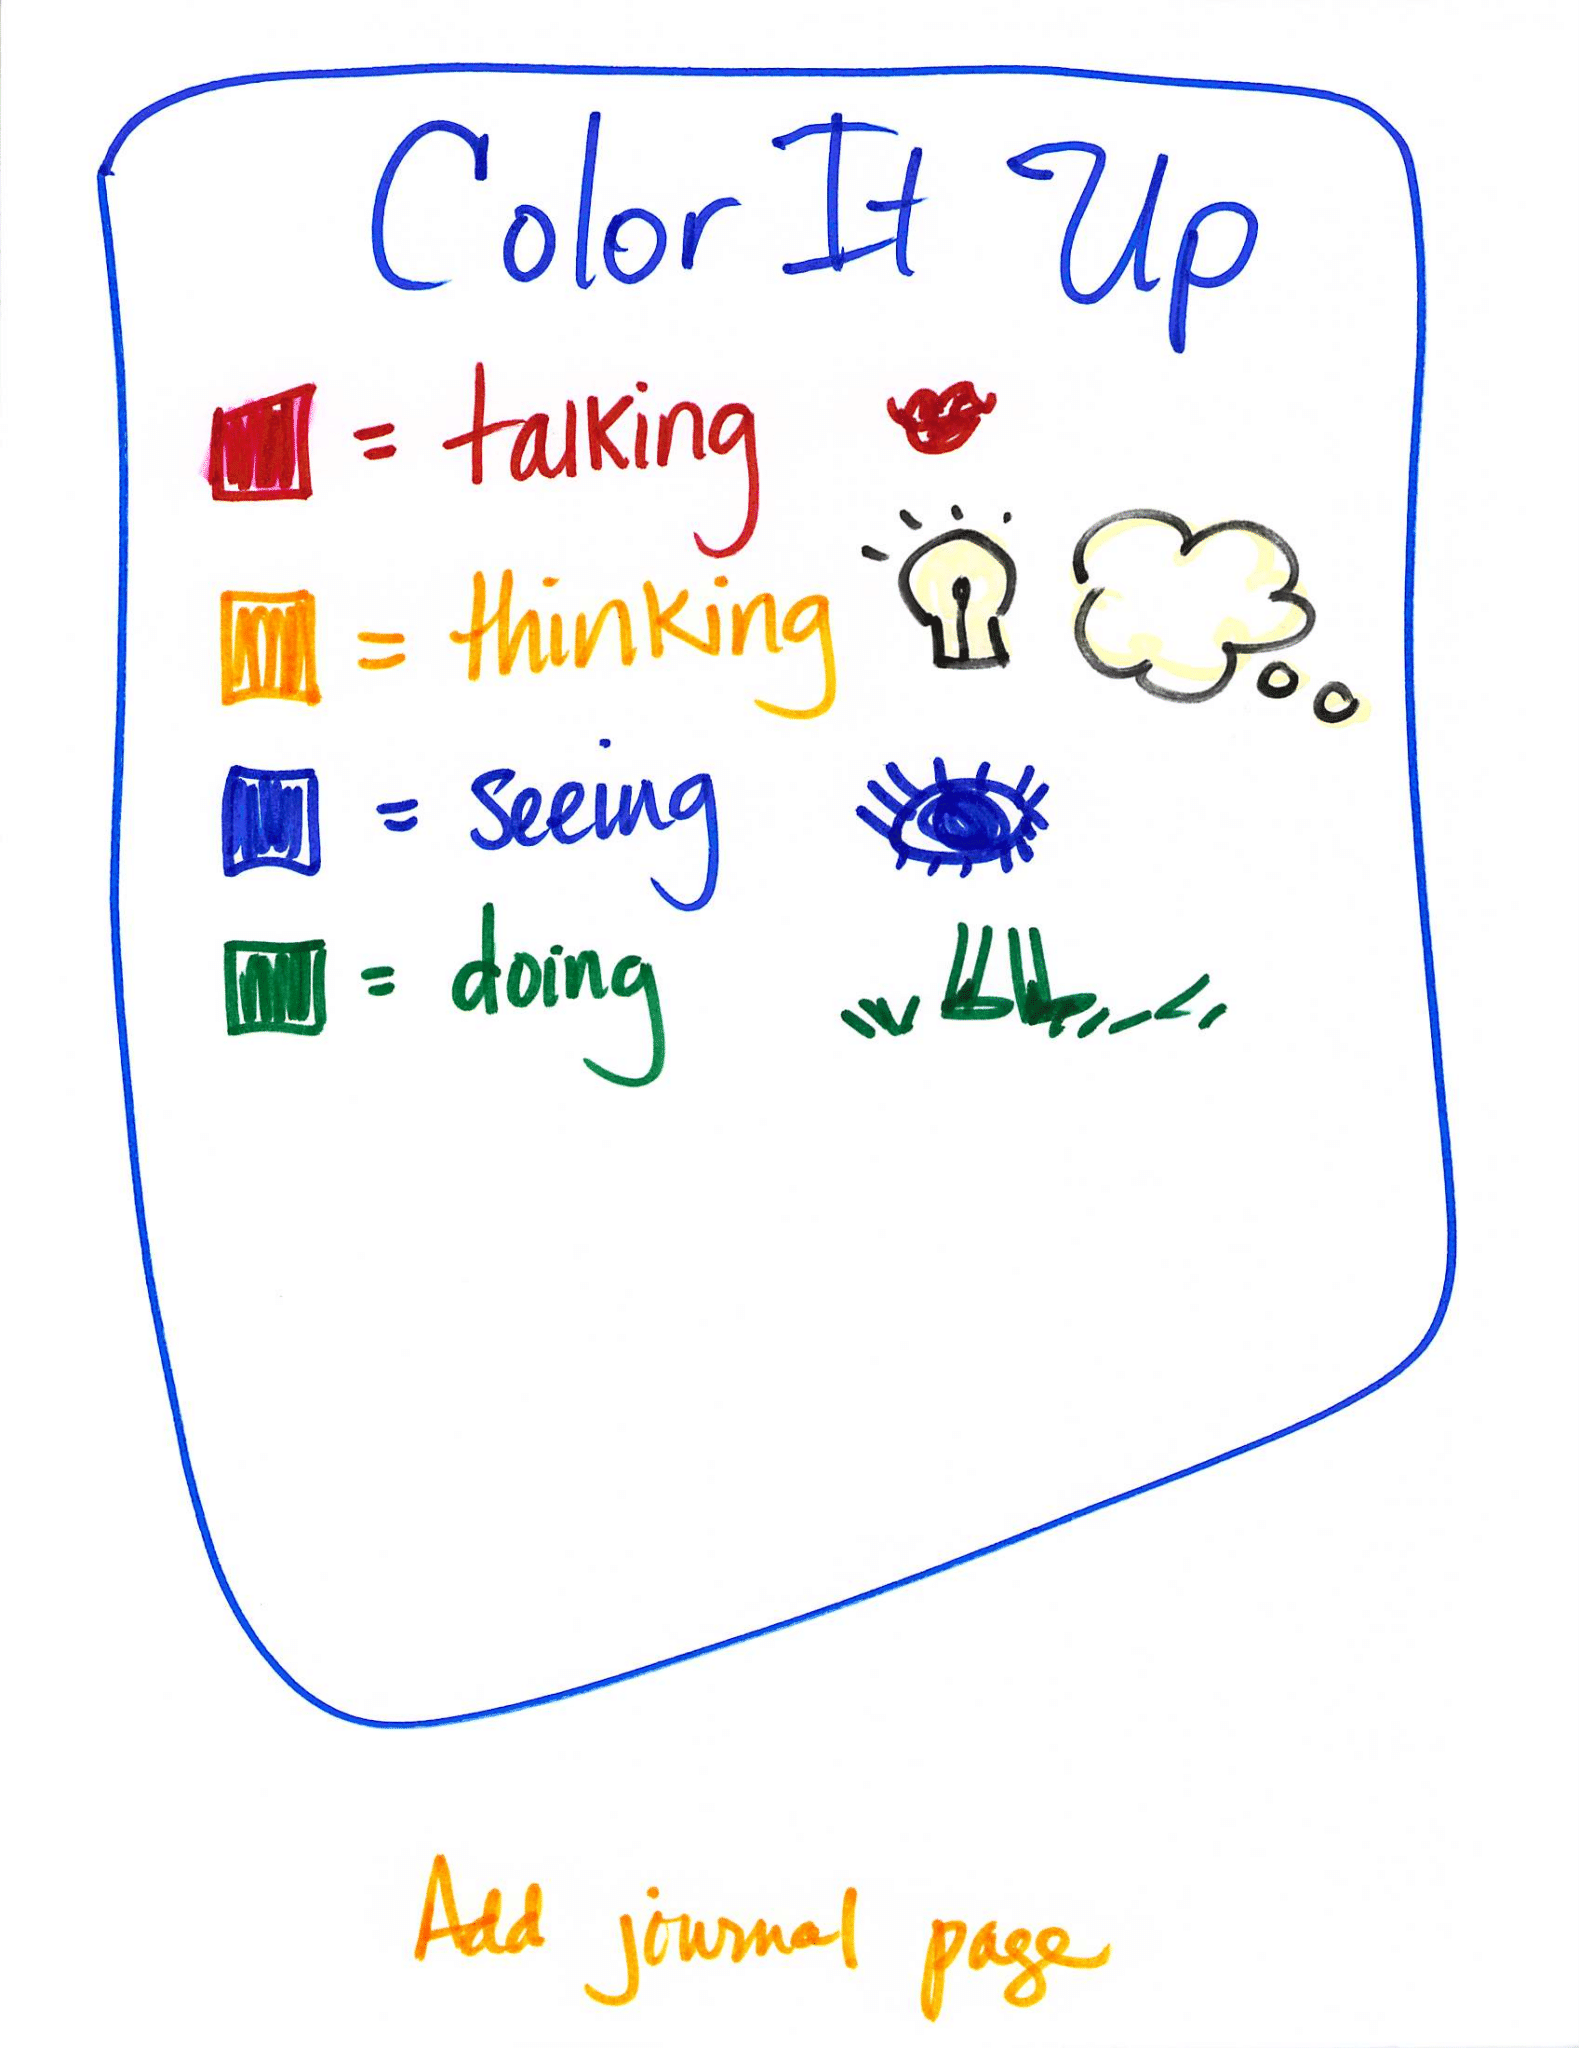 Color It Up
= talking
= thinking
= seeing
= doing
Add journal page